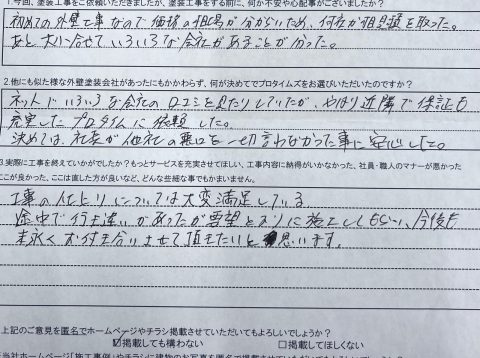 1.今回、塗装工事をご依頼いただきましたが、塗装工事をする前に、何か不安や心配事がございましたか?
初めての外壁工事なので価格の相場が分からないため、何社か相見積を取った。
あと、問い合せていろいろな会社があることが分かった。
2.他にも似た様な外壁塗装会社があったにもかかわらず、何が決めてでプロタイムズをお選びいただいたのですか?
ネットでいろいろな会社の口コミを見たりしていたが、やはり近隣で保証も
充実したプロタイムに依頼した。
決めては、社長が他社の悪口を一切言わなかった事に安心した。
3.実際に工事を終えていかがでしたか?もっとサービスを充実させてほしい、工事内容に納得がいかなかった、社員・職人のマナーが悪かった
ここが良かった、ここは直した方が良いなど、どんな些細な事でもかまいません。
工事の仕上りについては大変満足している。
途中で行き違いがあったが要望どおりに施工してもらい、今後も
末永くお付き合いさせて頂きたいと思います。
上記のご意見を匿名でホームページやチラシ掲載させていただいてもよろしいでしょうか?
☑掲載しても構わない □掲載してほしくない